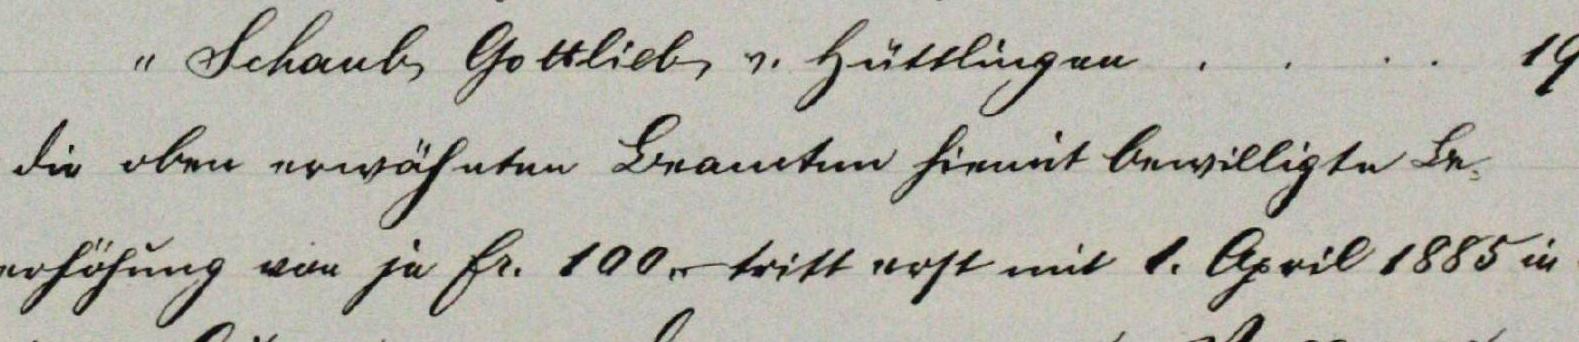 " Schaub, Gottlieb, v. Hüttlingen . . . . 19
die oben erwähnten Beamten hiemit bewilligte Be-
erhöhung von je fr. 100.- tritt erst mit 1. April 1885 in